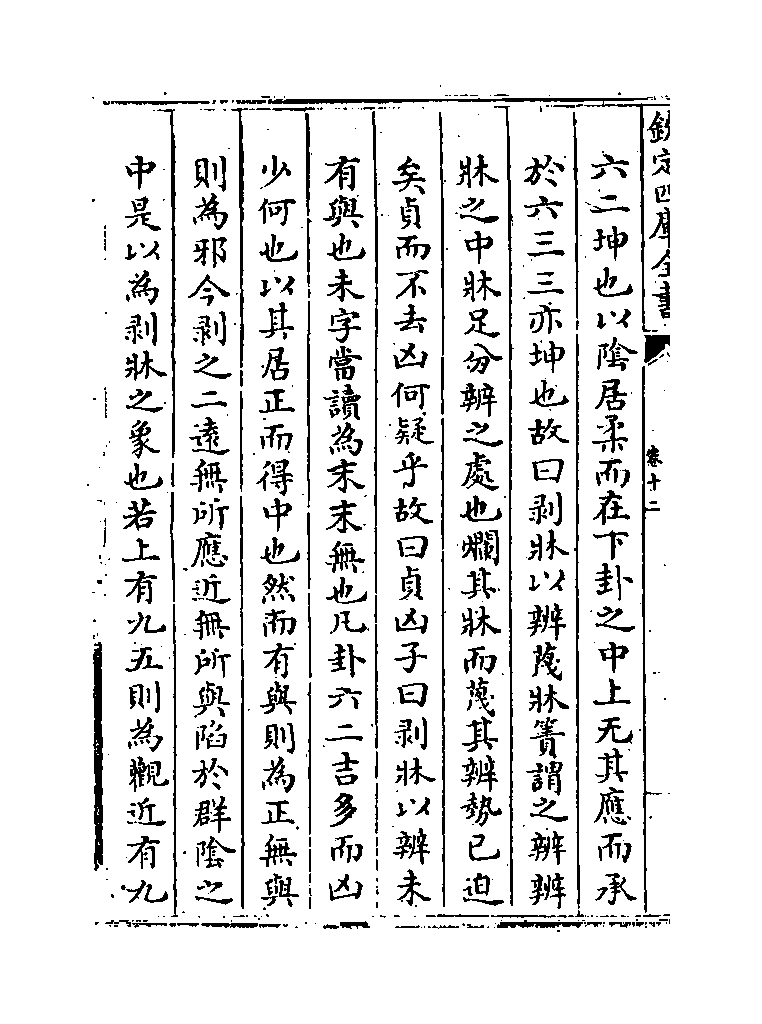 欽定四庫全書
卷十二
六二坤也以陰居柔而在下卦之中上无其應而承
於六三三亦坤也故曰剥牀以辨蔑牀簀謂之辨辨
牀之中牀足分辨之處也爛其牀而蔑其辨勢已迫
矣貞而不去凶何疑乎故曰貞凶子曰剥牀以辨未
有與也未字當讀為末末無也凡卦六二吉多而凶
少何也以其居正而得中也然而有與則為正無與
則為邪今剥之二遠無所應近無所與陷於群陰之
中是以為剥牀之象也若上有九五則為觀近有九